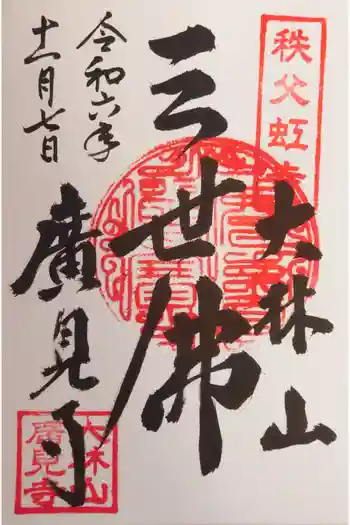 秩父虹
大林山
三世佛
廣見寺
令和六年
十一月七日
大林山
廣見寺